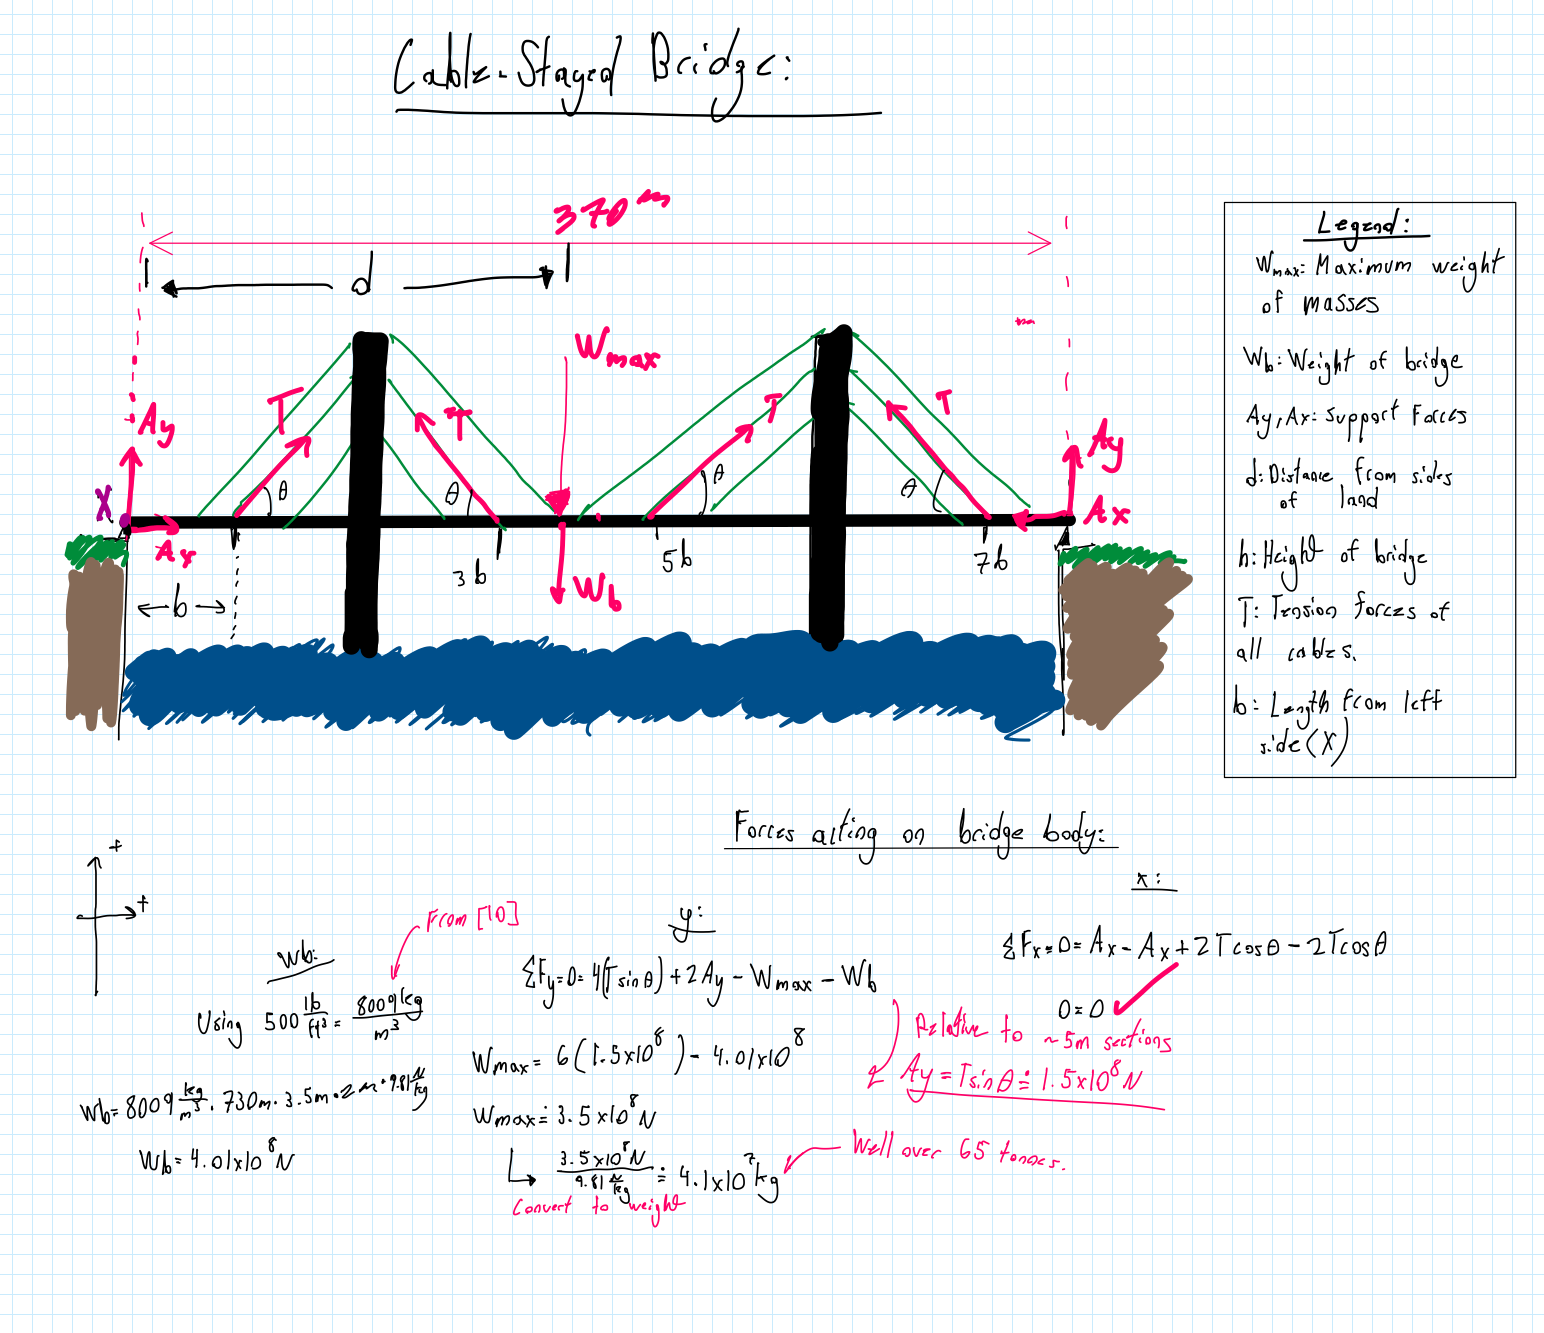 Cable-Stayed Bridge:
370 m
d
Wmax
T
T
T
T
Ay
Ay
X
θ
θ
θ
θ
Ax
Ax
b
3b
5b
7b
Wb
Legend:
Wmax: Maximum weight
of masses
Wb: Weight of bridge
Ay, Ax: Support Forces
d: Distance from sides
of land
h: Height of bridge
T: Tension forces of
all cables.
b: Length from left
side (X)
Forces acting on bridge body:
+
+
Wb:
From [10]
Using 500 lb/ft³ = 8009 kg/m³
Wb = 8009 kg/m³ · 730m · 3.5m · 2m · 9.81 N/kg
Wb = 4.01x10⁸ N
y:
ΣFy = 0 = 4(Tsinθ) + 2Ay - Wmax - Wb
Wmax = 6(1.5x10⁸) - 4.01x10⁸
Wmax ≐ 3.5x10⁸ N
3.5x10⁸ N / 9.81 N/kg ≐ 4.1x10⁷ kg
Convert to weight
Well over 65 tonnes.
x:
ΣFx = 0 = Ax - Ax + 2Tcosθ - 2Tcosθ
0 = 0
Relative to ~5m sections
Ay = Tsinθ ≐ 1.5x10⁸ N